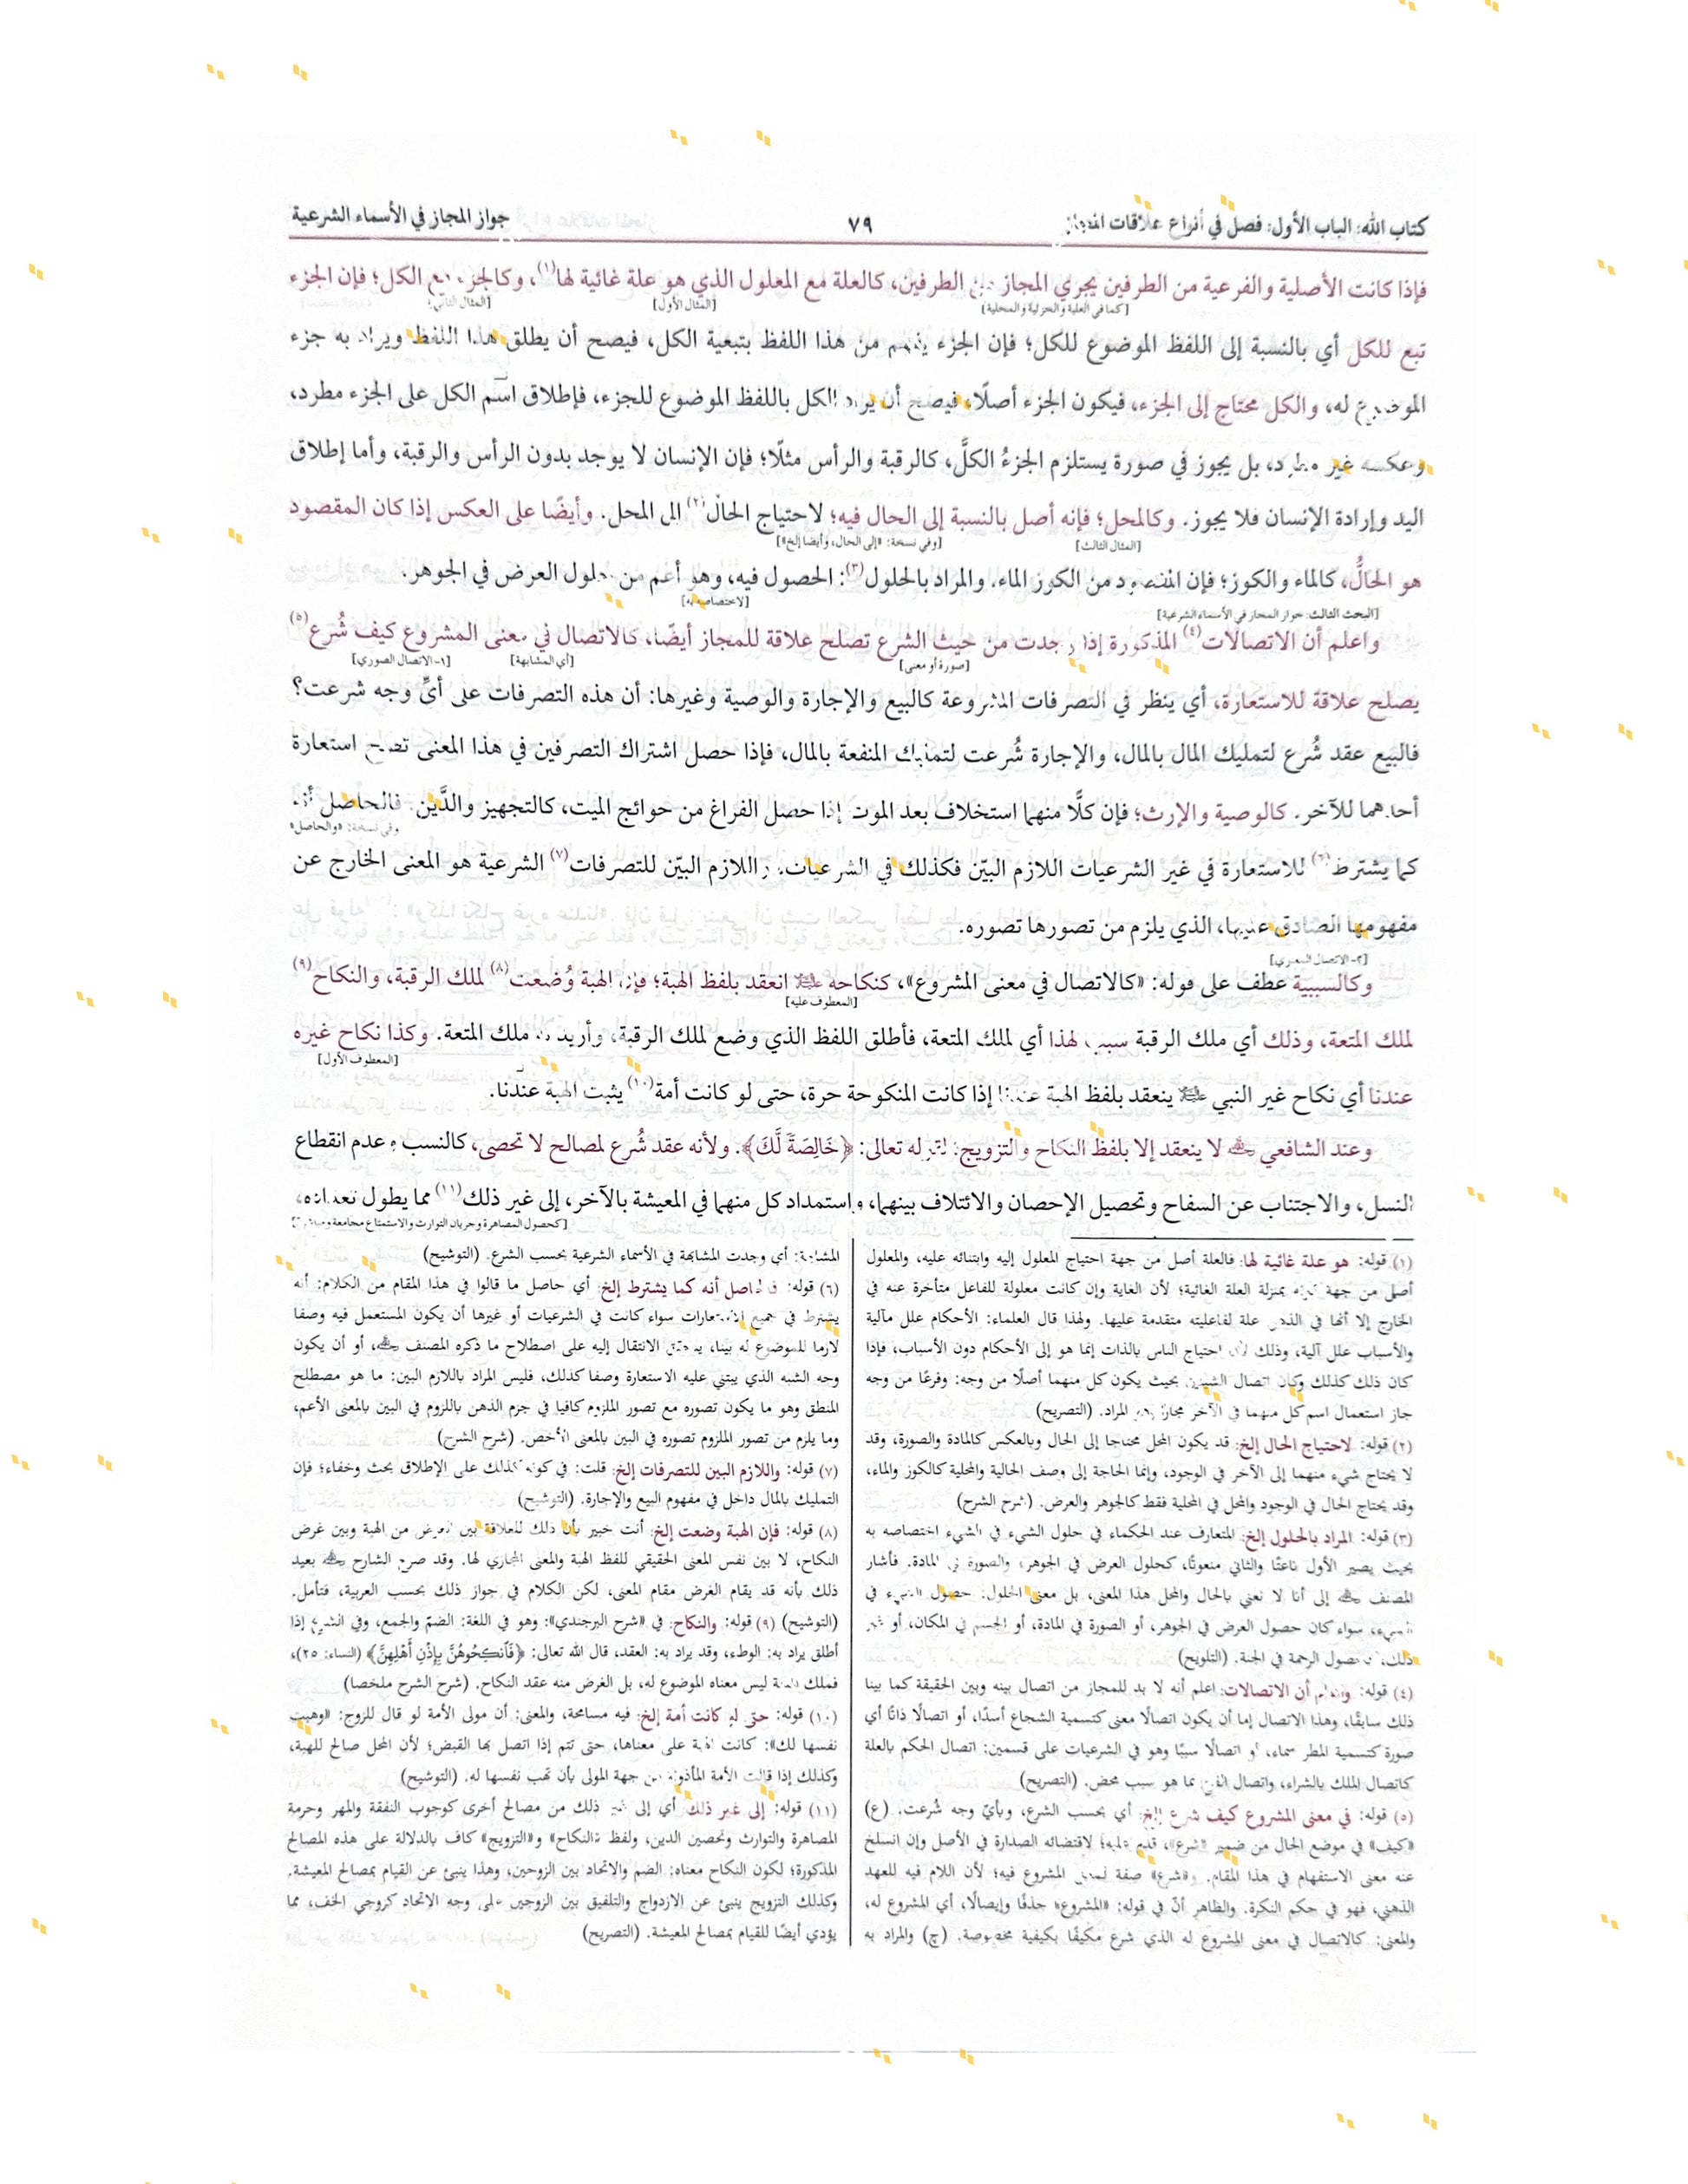 كتاب الله: الباب الأول: فصل في أنواع علاقات المجاز
٧٩
جواز المجاز في الأسماء الشرعية
فإذا كانت الأصلية والفرعية من الطرفين يجري المجاز من الطرفين، كالعلة مع المعلول الذي هو علة غائية لها(١)، وكالجزء مع الكل؛ فإن الجزء
[كما في العلية والجزئية والمحلية] [المثال الأول] [المثال الثاني]
تبع للكل أي بالنسبة إلى اللفظ الموضوع للكل؛ فإن الجزء يفهم من هذا اللفظ بتبعية الكل، فيصح أن يطلق هذا اللفظ ويراد به جزء
الموضوع له، والكل محتاج إلى الجزء، فيكون الجزء أصلًا، فيصح أن يراد الكل باللفظ الموضوع للجزء، فإطلاق اسم الكل على الجزء مطرد،
وعكسه غير مطرد، بل يجوز في صورة يستلزم الجزءُ الكلَّ، كالرقبة والرأس مثلًا؛ فإن الإنسان لا يوجد بدون الرأس والرقبة، وأما إطلاق
اليد وإرادة الإنسان فلا يجوز. وكالمحل؛ فإنه أصل بالنسبة إلى الحال فيه؛ لاحتياج الحال(٢) إلى المحل. وأيضًا على العكس إذا كان المقصود
[المثال الثالث] [وفي نسخة: «إلى الحال، وأيضا إلخ»]
هو الحالُّ، كالماء والكوز؛ فإن المقصود من الكوز الماء. والمراد بالحلول(٣): الحصول فيه، وهو أعم من حلول العرض في الجوهر.
[البحث الثالث: جواز المجاز في الأسماء الشرعية] [لاختصاصه به]
واعلم أن الاتصالات(٤) المذكورة إذا وجدت من حيث الشرع تصلح علاقة للمجاز أيضًا، كالاتصال في معنى المشروع كيف شُرع(٥)
[صورة أو معنى] [أي المشابهة] [١- الاتصال الصوري]
يصلح علاقة للاستعارة، أي ينظر في التصرفات المشروعة كالبيع والإجارة والوصية وغيرها: أن هذه التصرفات على أيِّ وجه شرعت؟
فالبيع عقد شُرع لتمليك المال بالمال، والإجارة شُرعت لتمليك المنفعة بالمال، فإذا حصل اشتراك التصرفين في هذا المعنى تصح استعارة
أحدهما للآخر. كالوصية والإرث؛ فإن كلًّا منهما استخلاف بعد الموت إذا حصل الفراغ من حوائج الميت، كالتجهيز والدَّين. فالحاصل أنه
وفي نسخة: «والحاصل»
كما يشترط(٦) للاستعارة في غير الشرعيات اللازم البيّن فكذلك في الشرعيات، واللازم البيّن للتصرفات(٧) الشرعية هو المعنى الخارج عن
مفهومها الصادق عليها، الذي يلزم من تصورها تصوره.
وكالسببية عطف على قوله: «كالاتصال في معنى المشروع»، كنكاحه ﷺ انعقد بلفظ الهبة؛ فإن الهبة وُضعت(٨) لملك الرقبة، والنكاح(٩)
[المعطوف عليه]
لملك المتعة، وذلك أي ملك الرقبة سبب لهذا أي لملك المتعة، فأطلق اللفظ الذي وضع لملك الرقبة، وأريد به ملك المتعة. وكذا نكاح غيره
[المعطوف الأول]
عندنا أي نكاح غير النبي ﷺ ينعقد بلفظ الهبة عندنا إذا كانت المنكوحة حرة، حتى لو كانت أمة(١٠) يثبت الهبة عندنا.
وعند الشافعي لا ينعقد إلا بلفظ النكاح والتزويج؛ لقوله تعالى: ﴿خَالِصَةً لَّكَ﴾. ولأنه عقد شُرع لمصالح لا تحصى، كالنسب وعدم انقطاع
النسل، والاجتناب عن السفاح وتحصيل الإحصان والائتلاف بينهما، واستمداد كل منهما في المعيشة بالآخر، إلى غير ذلك(١١) مما يطول تعداده،
[كحصول المصاهرة وجريان التوارث والاستمتاع مجامعة
(١) قوله: هو علة غائية لها: فالعلة أصل من جهة احتياج المعلول إليه وابتنائه عليه، والمعلول
أصل من جهة كونه بمنزلة العلة الغائية؛ لأن الغاية وإن كانت معلولة للفاعل متأخرة عنه في
الخارج إلا أنها في الذهن علة لفاعليته متقدمة عليها. ولهذا قال العلماء: الأحكام علل مآلية
والأسباب علل آلية، وذلك لأن احتياج الناس بالذات إنما هو إلى الأحكام دون الأسباب، فإذا
كان ذلك كذلك وكان اتصال الشيئين بحيث يكون كل منهما أصلًا من وجه: وفرعًا من وجه
جاز استعمال اسم كل منهما في الآخر مجازا، وهو المراد. (التصريح)
(٢) قوله: لاحتياج الحال إلخ: قد يكون المحل محتاجا إلى الحال وبالعكس كالمادة والصورة، وقد
لا يحتاج شيء منهما إلى الآخر في الوجود، وإنما الحاجة إلى وصف الحالية والمحلية كالكوز والماء،
وقد يحتاج الحال في الوجود والمحل في المحلية فقط كالجوهر والعرض. (شرح الشرح)
(٣) قوله: المراد بالحلول إلخ: المتعارف عند الحكماء في حلول الشيء في الشيء اختصاصه به
بحيث يصير الأول ناعتًا والثاني منعوتًا، كحلول العرض في الجوهر، والصورة في المادة. فأشار
المصنف إلى أنا لا نعني بالحال والمحل هذا المعنى، بل معنى الحلول: حصول الشيء في
الشيء، سواء كان حصول العرض في الجوهر، أو الصورة في المادة، أو الجسم في المكان، أو غير
ذلك، كحصول الرحمة في الجنة. (التلويح)
(٤) قوله: واعلم أن الاتصالات: اعلم أنه لا بد للمجاز من اتصال بينه وبين الحقيقة كما بينا
ذلك سابقًا، وهذا الاتصال إما أن يكون اتصالًا معنى كتسمية الشجاع أسدًا، أو اتصالًا ذاتًا أي
صورة كتسمية المطر سماء، أو اتصالًا سببًا وهو في الشرعيات على قسمين: اتصال الحكم بالعلة
كاتصال الملك بالشراء، واتصال الفرع بما هو سبب محض. (التصريح)
(٥) قوله: في معنى المشروع كيف شرع إلخ: أي بحسب الشرع، وبأيّ وجه شُرعت. (ع)
«كيف» في موضع الحال من ضمير «شرع»، قدم عليه؛ لاقتضائه الصدارة في الأصل وإن انسلخ
عنه معنى الاستفهام في هذا المقام. و«شرع» صفة لمعنى المشروع فيه؛ لأن اللام فيه للعهد
الذهني، فهو في حكم النكرة. والظاهر أنّ في قوله: «المشروع» حذفًا وإيصالًا، أي المشروع له،
والمعنى: كالاتصال في معنى المشروع له الذي شرع مكيفًا بكيفية مخصوصة. (چ) والمراد به
المشابهة: أي وجدت المشابهة في الأسماء الشرعية بحسب الشرع. (التوشيح)
(٦) قوله: فالحاصل أنه كما يشترط إلخ: أي حاصل ما قالوا في هذا المقام من الكلام: أنه
يشترط في جميع الاستعارات سواء كانت في الشرعيات أو غيرها أن يكون المستعمل فيه وصفا
لازما للموضوع له بينا، يتحقق الانتقال إليه على اصطلاح ما ذكره المصنف، أو أن يكون
وجه الشبه الذي يبتني عليه الاستعارة وصفا كذلك، فليس المراد باللازم البين: ما هو مصطلح
المنطق وهو ما يكون تصوره مع تصور الملزوم كافيا في جزم الذهن باللزوم في البين بالمعنى الأعم،
وما يلزم من تصور الملزوم تصوره في البين بالمعنى الأخص. (شرح الشرح)
(٧) قوله: واللازم البين للتصرفات إلخ: قلت: في كونه كذلك على الإطلاق بحث وخفاء؛ فإن
التمليك بالمال داخل في مفهوم البيع والإجارة. (التوشيح)
(٨) قوله: فإن الهبة وضعت إلخ: أنت خبير بأن ذلك للعلاقة بين الغرض من الهبة وبين غرض
النكاح، لا بين نفس المعنى الحقيقي للفظ الهبة والمعنى المجازي لها. وقد صرح الشارح بعيد
ذلك بأنه قد يقام الغرض مقام المعنى، لكن الكلام في جواز ذلك بحسب العربية، فتأمل.
(التوشيح) (٩) قوله: والنكاح: في «شرح البرجندي»: وهو في اللغة: الضمّ والجمع، وفي الشرع إذا
أطلق يراد به: الوطء، وقد يراد به: العقد، قال الله تعالى: ﴿فَٱنكِحُوهُنَّ بِإِذْنِ أَهْلِهِنَّ﴾ (النساء: ٢٥)،
فملك المتعة ليس معناه الموضوع له، بل الغرض منه عقد النكاح. (شرح الشرح ملخصا)
(١٠) قوله: حتى لو كانت أمة إلخ: فيه مسامحة، والمعنى: أن مولى الأمة لو قال للزوج: «وهبت
نفسها لك»: كانت هبة على معناها، حتى تتم إذا اتصل بها القبض؛ لأن المحل صالح للهبة،
وكذلك إذا قالت الأمة المأذونة من جهة المولى بأن تهب نفسها له. (التوشيح)
(١١) قوله: إلى غير ذلك: أي إلى غير ذلك من مصالح أخرى كوجوب النفقة والمهر وحرمة
المصاهرة والتوارث وتحصين الدين، ولفظ «النكاح» و«التزويج» كاف بالدلالة على هذه المصالح
المذكورة؛ لكون النكاح معناه: الضم والاتحاد بين الزوجين، وهذا ينبئ عن القيام بمصالح المعيشة.
وكذلك التزويج ينبئ عن الازدواج والتلفيق بين الزوجين على وجه الاتحاد كزوجي الخف، مما
يؤدي أيضًا للقيام بمصالح المعيشة. (التصريح)